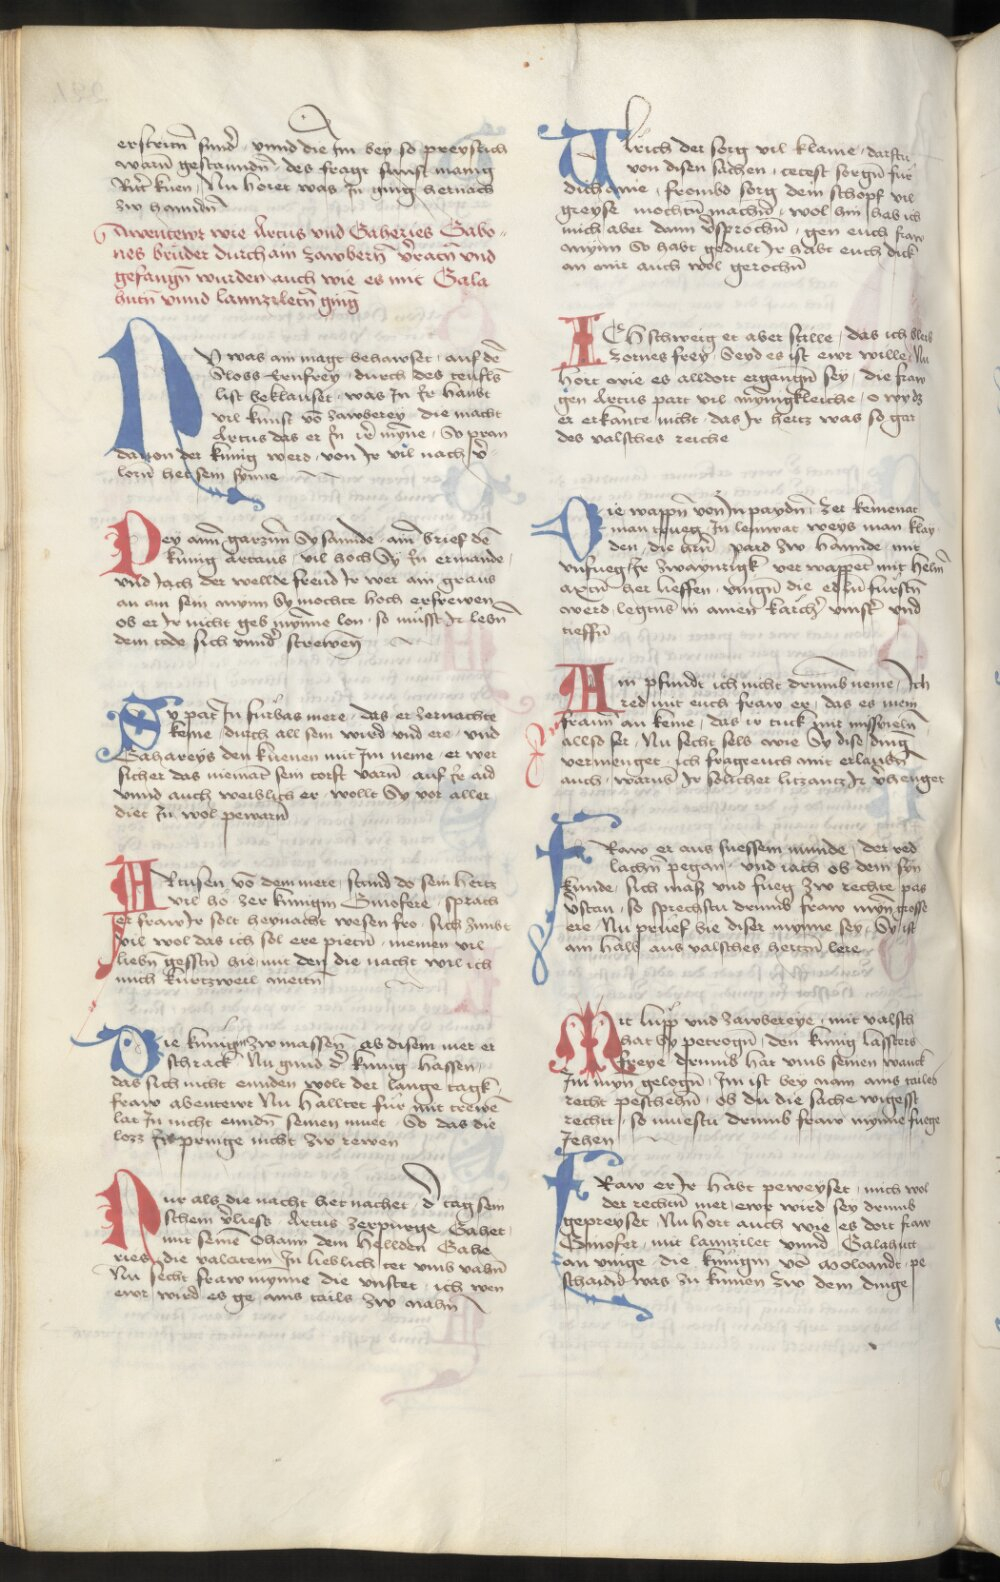 erstriten sind / vnnd die Im bey so preyslich
warn gestanndn / des fragt sunst manig
Rittr kuen / Nu horet was In ging hernach
zw hanndn
Awentewr wie Artus vnd Gaheries Gabo-
nes bruder durch ain zawbern v̾ratn̄ vnd
gefangn̄ wurden auch wie es mit Gala
hutn̄ vnnd lannziletn̄ ging
DO was ain magt behawset / auf dē
Sloss / durch des teufls
list beklauset / was In Ir haubt
vil kunst vō zawberey / die macht
Artus das er In irē mynne / So pran
dauon der kunig werd / von Ir vil nach v̾-
lorn̄ het sein synne
Pey ainē garzun Sy sannde / ainē brief dē
kunig Artaus / vil hoch Sy In ermande /
vnd Iach der wellde freud Ir wer ain graus
an ain sein mynn Sy mochte hoch erfrewen
ob er Ir nicht geb mynne lon / so musst Ir lebn̄
dem tode sich vnnd̾ strewen
Sy pat In furbas mere / das er zernachte
keme / durch all sein wird vnd ere / vnd
Gahareys den kuenen mit Im neme / er wer
sicher das niemat sein torst varn̄ auf Ir aid
vnnd auch weiblich er / wollt Sy vor aller
diet In wol pewarn̄
ARtusen vō dem mere / stund do sein hertz
vil ho / zer kunigin Ginofere / sprach
er fraw Ir solt heynacht wesen fro / sich zimbt
vil wol das ich sol ere pietn̄ / meinen vil
liebn̄ gesstn̄ hie / mit den die nacht wil ich
mich kurtzweil nietn̄
Die kunigin zw massen / ab disem met er
schrack / Nu gund d̾ kunig hassen /
das sich nicht ennden wolt der lange tagk
fraw abentewr Nu halltet fur mit trewē
lat In nicht enndn̄ seinen muet / So das die
lozz In pringe nicht zw rewen
Nur als die nacht het nachet / d̾ tag sein
schein v̾liess / Artus zerpurge gahet /
mit seinē Ohaim dem hellden Gahe
ries / die valatein In lieblich tet vmb vahn̄
Nu secht fraw mynne die vnstet / ich wen
ewr wird es ge ains tails zw nahn̄
Ulrich der sorg vil klaine / darstu
von disen sachen / tetest sorgn̄ fur
dich aine / frombd sorg dein schopf vil
greyse mochtn̄ machn̄ / wol hin hab ich
mich aber dann v̾sprochn̄ / gen euch fraw
mynn So habt gedult Ir habt euch dick
an mir auch wol gerochn̄
ICh schweig er aber stille / das ich bleib
zornes frey / Seyd es ist ewr wille / Nu
hort wie es alldort ergangn̄ sey / die fraw
gen Artus part vil mynigkleiche / o wydz
er erkante nicht / das Ir hertz was so gar
des valsches reiche
Die wappn̄ von In paydn̄ / zer kemenat
man trueg / In leinwat weys man klay
den / die tirn̄ pard zw hannde mit
vnfueg / Ir zwaynzigk verwappet mit helm̄
axtn̄ her lieffen / viengn̄ die edln̄ furstn̄
werd / legtns in ainen karch̾ vinst̾ vnd
tieffn̄
Ain pfundt ich nicht drumb neme / Ich
red mit euch fraw er / das es mein
frawn an keme / das ir tuck mit missvieln̄
allso ser / Nu secht selb wie Sy dise ding
vermenget / ich frag euch mit erlaubn̄
auch / warumb Ir solicher litzantz Ir v̾henget
FRaw er aus suessem munde / der red
lachn̄ pegan / vnd iach ob dein syn
kunde / sich mass vnd fueg zw rechte pas
v̾stan / so sprechstu drumb fraw myn̄ grosse
ere / Nu pruef hie diser mynne sey / Sy ist
ain halb aus valsches hertzn̄ lere
Mit lupp vnd zawbereye / mit valsch
hat Sy petrogn̄ / den kunig lassters
freye / drumb hat vmb seinen wanck
Im myn gelogn̄ / Im ist bey nam ains tailes
recht peschehn̄ / ob du die sache wigesst
rechtt / so muestu drumb fraw mynne fuege
Iehen
FRaw er Ir habt peweyset / mich wol
der rechtn̄ mer / ewr wird sey drumb
gepreyset / Nu hort auch wie es dort fraw
Ginofer / mit lannzilet vnnd Galahutt
an vienge / die kunigin vō Moloandt / pe
schaidn̄ was zu kunnen zw dem dinge